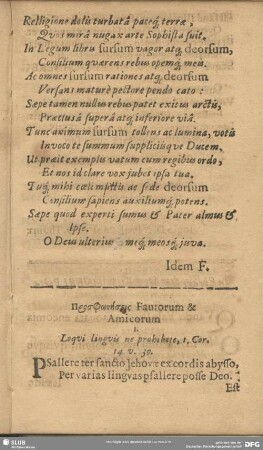 Relligione dolis turbatâ paceq́; terræ,
Quos mirâ nugax arte Sophista suit.
In Legum libru sursum vagor atq́; deorsum,
Consilium quærens rebus opemq́; meis.
Ac omnes sursum rationes atq́; deorsum
Versans maturè pectore pendo cato:
Sæpe tamen nullus rebus patet exitus arctis,
Præclusâ superâ atq́; inferiore viâ.
Tunc animum sursum tollens ac lumina, votis
Invoco te summum suppliciusque Ducem.
Ut præit exemplis vatum cum regibus ordo,
Et nos id clare vox jubet ipsa tua.
Tuq́; mihi cœli mittis ae sede deorsum
Consilium sapiens auxiliumq́; potens.
Sæpe quod experti sumus & Pater almus &
Ipse.
O Deus ulterius meq́; meosq́; juva.
Idem F.
Fautorum &
Amicorum
I.
Loqui linguis ne prohibete, 1. Cor.
14. v. 39.
PSallere ter sancto Jehovæ ex cordis abysso,
Per varias linguas psallere posse Deo.
Est
SLUB
DFG